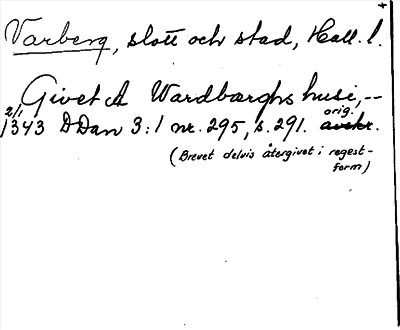 Varberg, slott och stad, Hall. l.
Givet A Wardbærghs husi,--
2/1 orig.
1343 DDan 3:1 nr. 295, s. 291. avskr.
(Brevet delvis återgivet i regest-
form)